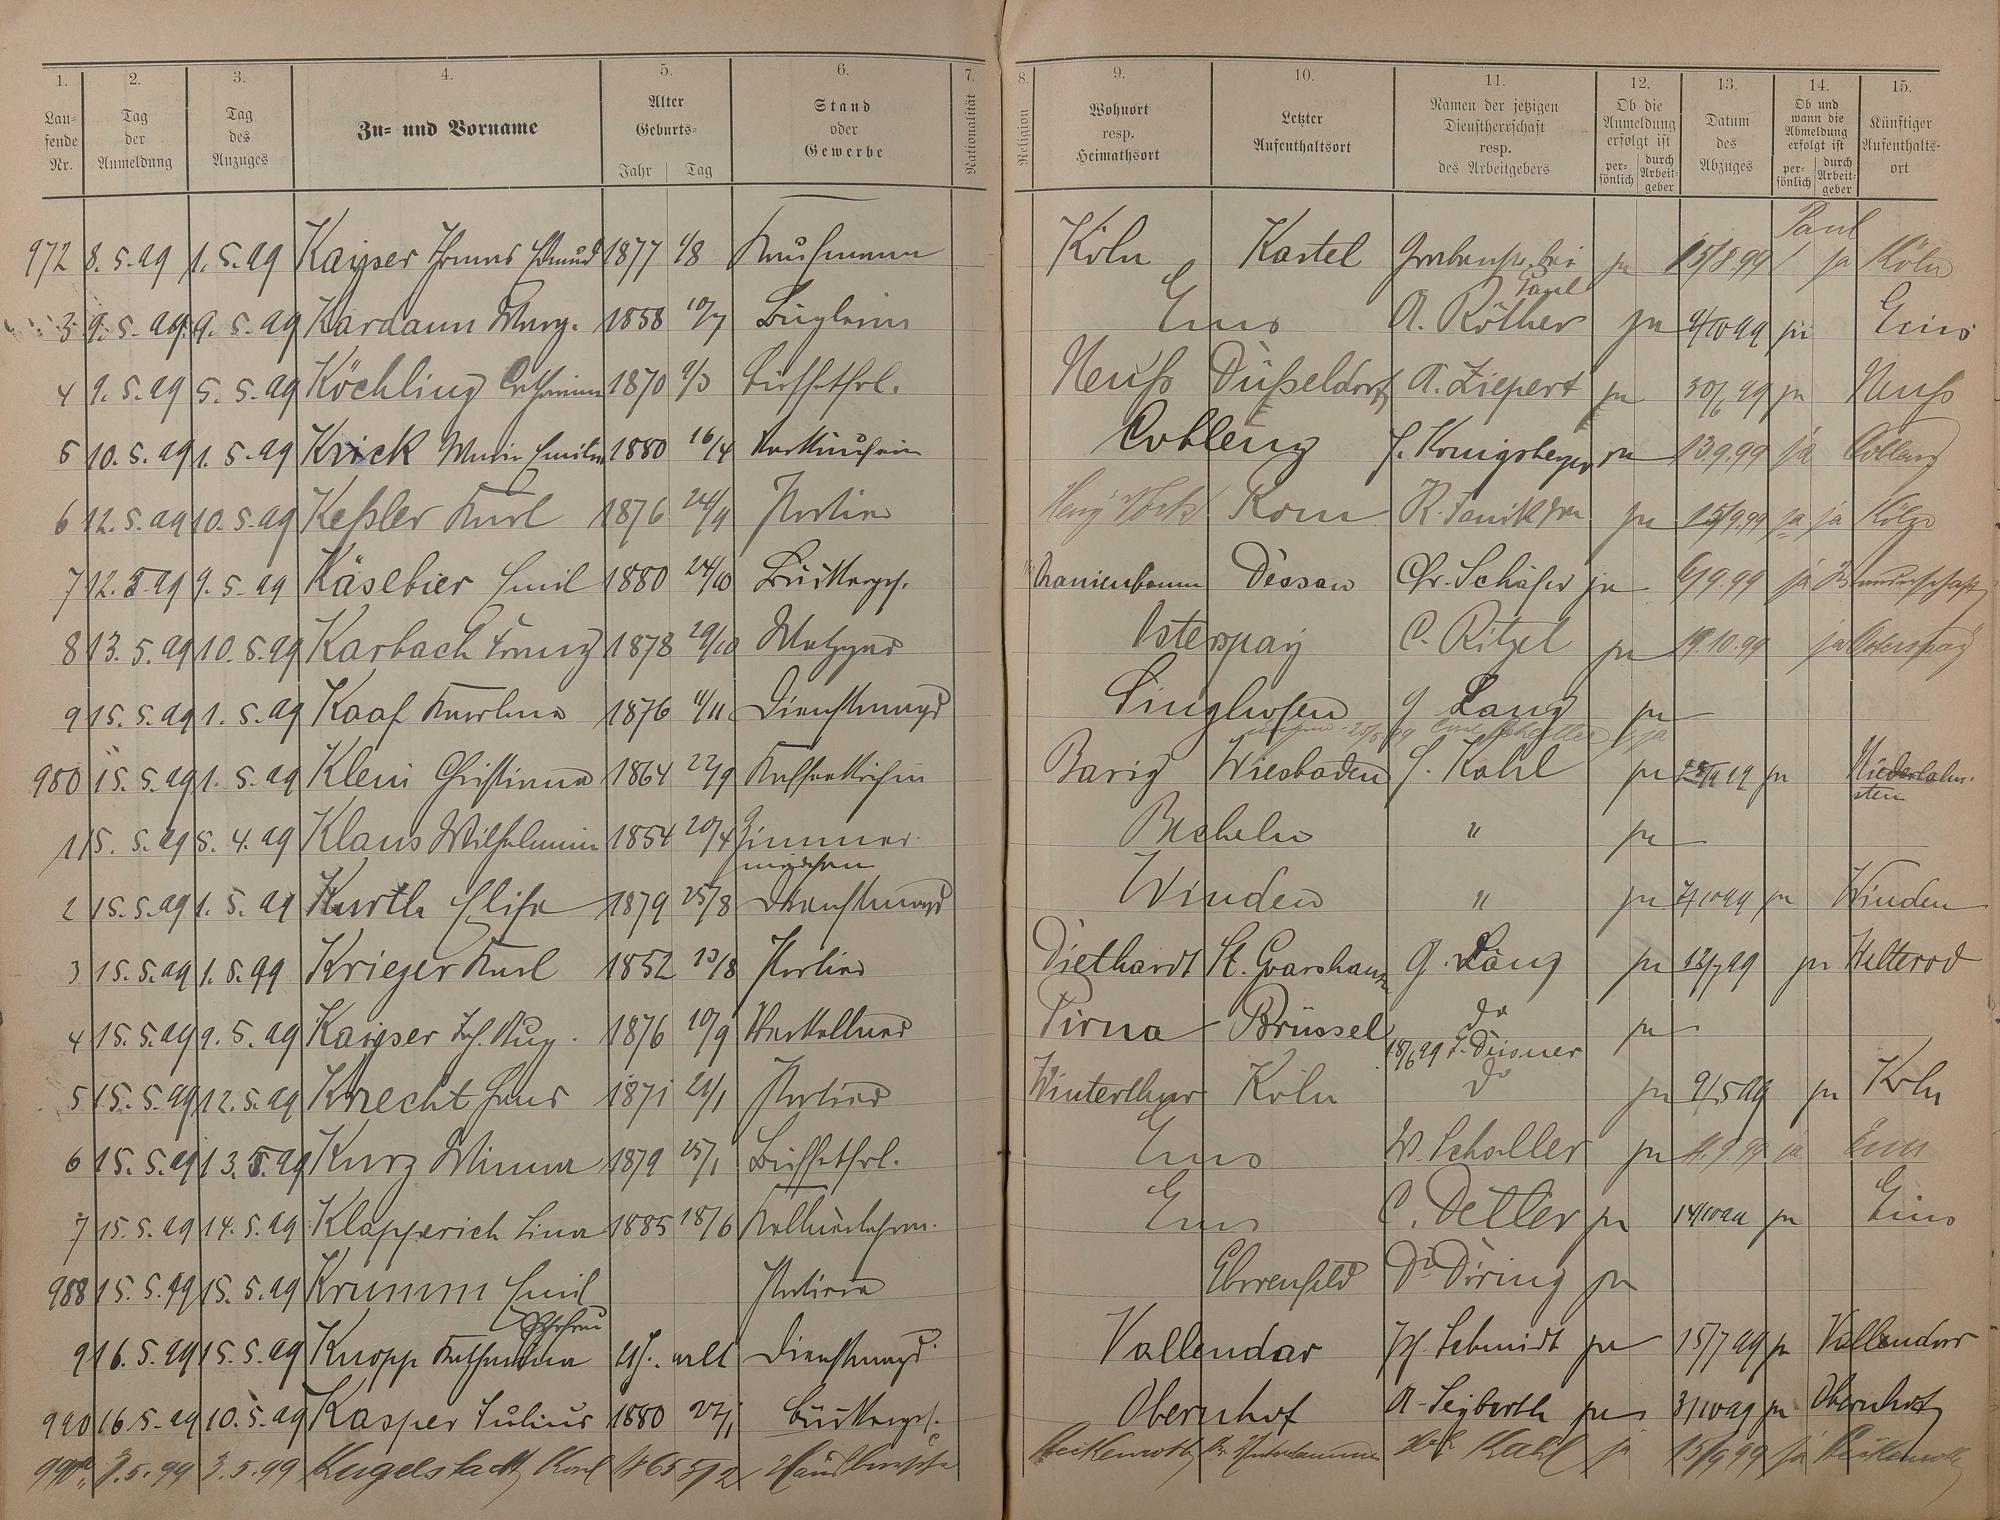 1. 2. 3. 4. 5. 6. 7. 8. 9. 10. 11. 12. 13. 14. 15.
Laufende Nr. | Tag der Anmeldung | Tag des Anzuges | Zu- und Vorname | Alter Geburts- Jahr Tag | Stand oder Gewerbe | Nationalität | Religion | Wohnort resp. Heimathsort | Letzter Aufenthaltsort | Namen der jetzigen Dienstherrschaft resp. des Arbeitgebers | Ob die Anmeldung erfolgt ist persönlich durch Arbeitgeber | Datum des Abzuges | Ob und wann die Abmeldung erfolgt ist persönlich durch Arbeitgeber | Künftiger Aufenthaltsort
972 8. 5. 99 1. 5. 99 Kayser Thomas 1877 1/8 Kaufmann Köln Kastel ja 15/8.99 ja Köln
3 9. 5. 99 9. 5. 99 Kardaun Marg. 1858 10/7 Büglerin Ems A. Röther ja 9/10 99 ja Ems
4 9. 5. 99 5. 5. 99 Köchling 1870 Büffetfrl. Neuß Düßeldorf A. Ziepert ja 30/6 99 ja Neuß
5 10. 5. 99 1. 5. 99 Krick Maria Emilie 1880 16/4 Verkäuferin Coblenz ja 13.9.99 ja Coblenz
6 12. 5. 99 10. 5. 99 Keßler Karl 1876 24/9 Portier Rom ja 15/9.99 ja ja
7 12. 5 99 9. 5. 99 Käsebier Emil 1880 24/10 Bäckerges. Oranienbaum Dessau Chr. Schäfer ja 6/9.99 ja Wanderschaft
8 13. 5. 99 10. 5. 99 Karbach Franz 1878 29/10 Metzger Osterspay C. Ritzel ja 19.10.99 ja Osterspay
9 15. 5. 99 1. 5. 99 Kaaf Karolina 1876 4/11 Dienstmagd Singhofen G Lang ja
980 15. 5. 99 1. 5. 99 Klein Christiana 1864 22/9 Kaffeeköchin Wiesbaden J. Kahl ja ja Niederlahnstein
1 15. 5. 99 5. 4. 99 Klaus Wilhelmine 1854 20/4 Zimmermädchen Becheln " ja
2 15. 5. 99 1. 5. 99 Kurth Elise 1879 25/8 Dienstmagd Winden " ja 7/10 99 ja Winden
3 15. 5. 99 1. 5. 99 Krieger Karl 1852 13/8 Portier Diethardt St. Goarshausen G. Lang ja 12/7 99 ja Welterod
4 15. 5. 99 9. 5. 99 Kayser Joh. Aug. 1876 10/9 Oberkellner Pirna Brüssel do ja
18/6 99
5 15. 5. 99 12. 5. 99 Knecht Hans 1871 21/1 Portier Winterthur Köln do ja 9/5 99 ja Köln
6 15. 5. 99 13. 5. 99 Kurz Minna 1879 25/1 Büffetfrl. Ems W. Schaller ja 11.9.99 ja Ems
7 15. 5. 99 14. 5. 99 Klapperich Lina 1885 18/6 Ems C. Detler ja 14/10 99 ja Ems
988 15. 5. 99 15. 5. 99 Krumm Emil Portier Ehrenfeld Dr Döring ja
9 16. 5. 99 15. 5. 99 Knopp Katharina alt Dienstmagd Vallendar Jos. Schmidt ja 15/7 99 ja Vallendar
990 16. 5. 99 10. 5. 99 Kasper Julius 1880 27/1 Bäckerges. Obernhof A. Seyberth ja 31/10 99 ja Obernhof
3. 5. 99 3. 5. 99 Kugelstadt Karl 1865 5/2 Hausbursche Kahl ja 15/9 99 ja